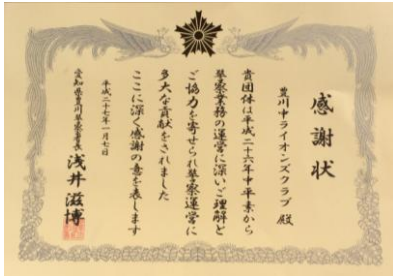 感謝状
豊川中ライオンズクラブ 殿
貴団体は平成二六年中平素から
警察業務の運営に深いご理解と
ご協力を寄せられ警察運営に
多大な貢献をされました
ここに深く感謝の意を表します
平成二十七年一月七日
愛知県豊川警察署長 浅井滋博